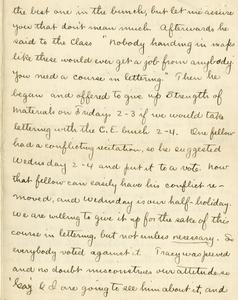 the best one in the bunch, but let me assure
you that don't mean much. Afterwards he
said to the class "nobody handing in maps
like these would ever get a job from anybody.
You need a course in lettering." Then he
began and offered to give up Strength of
Materials on Friday 2-3 if we would take
lettering with the C.E. bunch 2-4. One fellow
had a conflicting recitation, so he suggested
Wednesday 2-4 and put it to a vote. Now
that fellow can easily have his conflict re-
moved, and Wednesday is our half-holiday.
We are willing to give it up for the sake of this
course in lettering, but not unless necessary. So
everybody voted against it. Tracy was peeved
and no doubt misconstrues our attitude, so
& I are going to see him about it, and